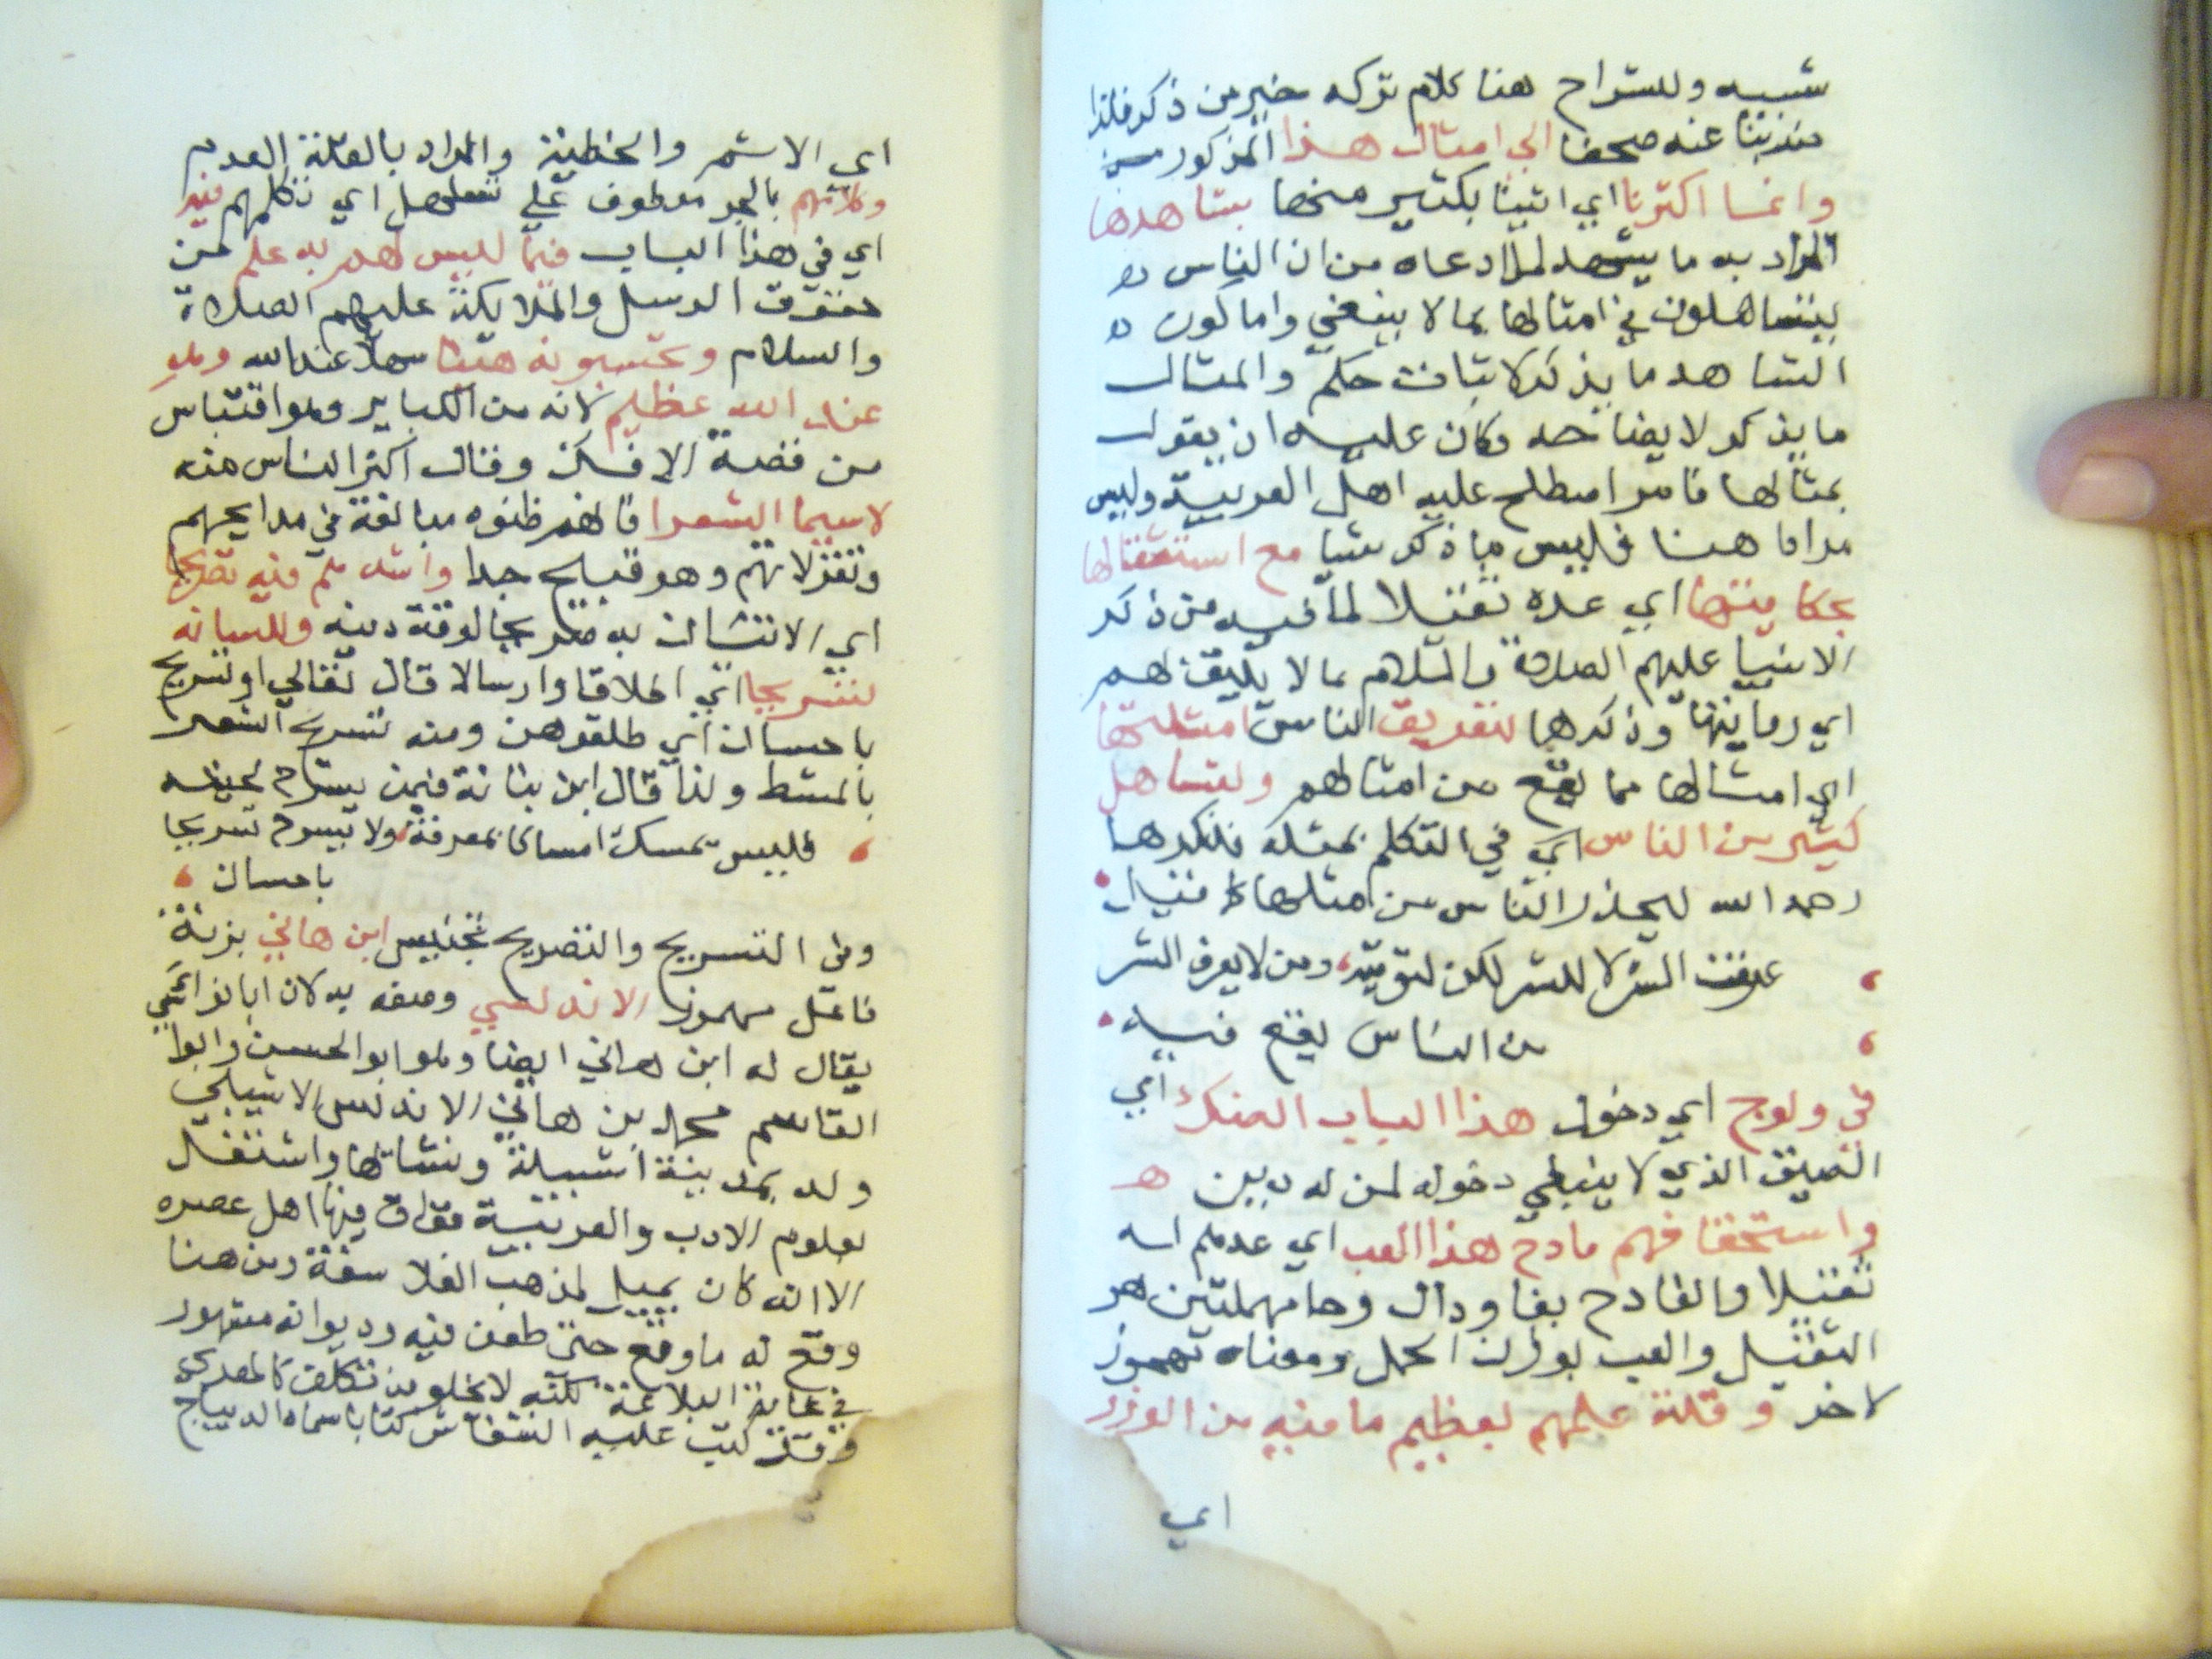 شبيه وللشراح هنا كلام تركه خير من ذكره فلذا
ضربنا عنه صحفا الي امثال هذا المذكور من
وانما اكثرنا اي اتينا بكثير منها بشاهدها
المراد به ما يشهد لما ادعاه من ان الناس
يتساهلون في امثالها بما لا ينبغي واما كون
الشاهد ما يذكر لاثبات حكم والمثال
ما يذكر لايضاحه وكان عليه ان يقول
بمثالها فامر اصطلح عليه اهل العربية وليس
مرادا هنا فليس ما ذكر شيا مع استثقالنا
حكايتها اي عده ثقيلا لما فيه من ذكر
الانبيا عليهم الصلاة والسلام بما لا يليق بهم
اي روايتها وذكرها لتعريف الناس امثلتها
اي امثالها مما يقع من امثالهم ولتساهل
كثير من الناس اي في التكلم بمثله فذكرها
رحمه الله ليحذر الناس من امثلها كما قيل
عرفت الشر لا للشر لكن لتوقيه ومن لا يعرف الشر
من الناس يقع فيه
في ولوج اي دخول هذا الباب الضنك اي
الضيق الذي لا ينبغي دخوله لمن له دين
واستخفافهم فادح هذا العب اي عدهم له
ثقيلا والفادح بفا ودال وحا مهملتين هو
الثقيل والعب بوزن الحمل ومعناه مهموز
لاخر وقلة علمهم بعظيم ما فيه من الوزر
اي
اي الاثم والخطية والمراد بالقلة العدم
وكلامهم بالجر معطوف علي تساهل اي تكلمهم فيه
اي في هذا الباب فيما ليس لهم به علم من
حقوق الرسل والملايكة عليهم الصلاة
والسلام وتحسبونه هينا سهلا عند الله وهو
عند الله عظيم لانه من الكباير وهو اقتباس
من قصة الافك وقال اكثر الناس منه
لاسيما الشعرا فانهم ظنوه مبالغة في مدايحهم
وتغزلاتهم وهو قبيح جدا واشدهم فيه تصريحا
اي الاتيان به صريحا لوقة دينه وللسانه
تسريحا اي اطلاقا وارسالا قال تعالي او تسريح
باحسان اي طلقوهن ومنه تسريح الشعر
بالمشط ولذا قال ابن نباتة فيمن يسرح لحيته
فليس يمسك امساكا بمعرفة ولا يسرح تسريحا
باحسان
وفي التسريح والتصريح تجنيس ابن هاني بزنة
فاعل مهموز الاندلسي وصفه به لان ابا نواس
يقال له ابن هاني ايضا وهو ابو الحسن وابوا
القاسم محمد بن هاني الاندلسي الاشبيلي
ولد بمدينة اشبيلة ونشا بها واشتغل
بعلوم الادب والعربية ففاق فيها اهل عصره
الا انه كان يميل لمذهب الفلاسفة ومن هنا
وقع له ما وقع حتي طعن فيه وديوانه مشهور
في غاية البلاغة لكنه لا يخلو من تكلف كالمعري
وقد كتب عليه القفاش كتابا سماه الديباج